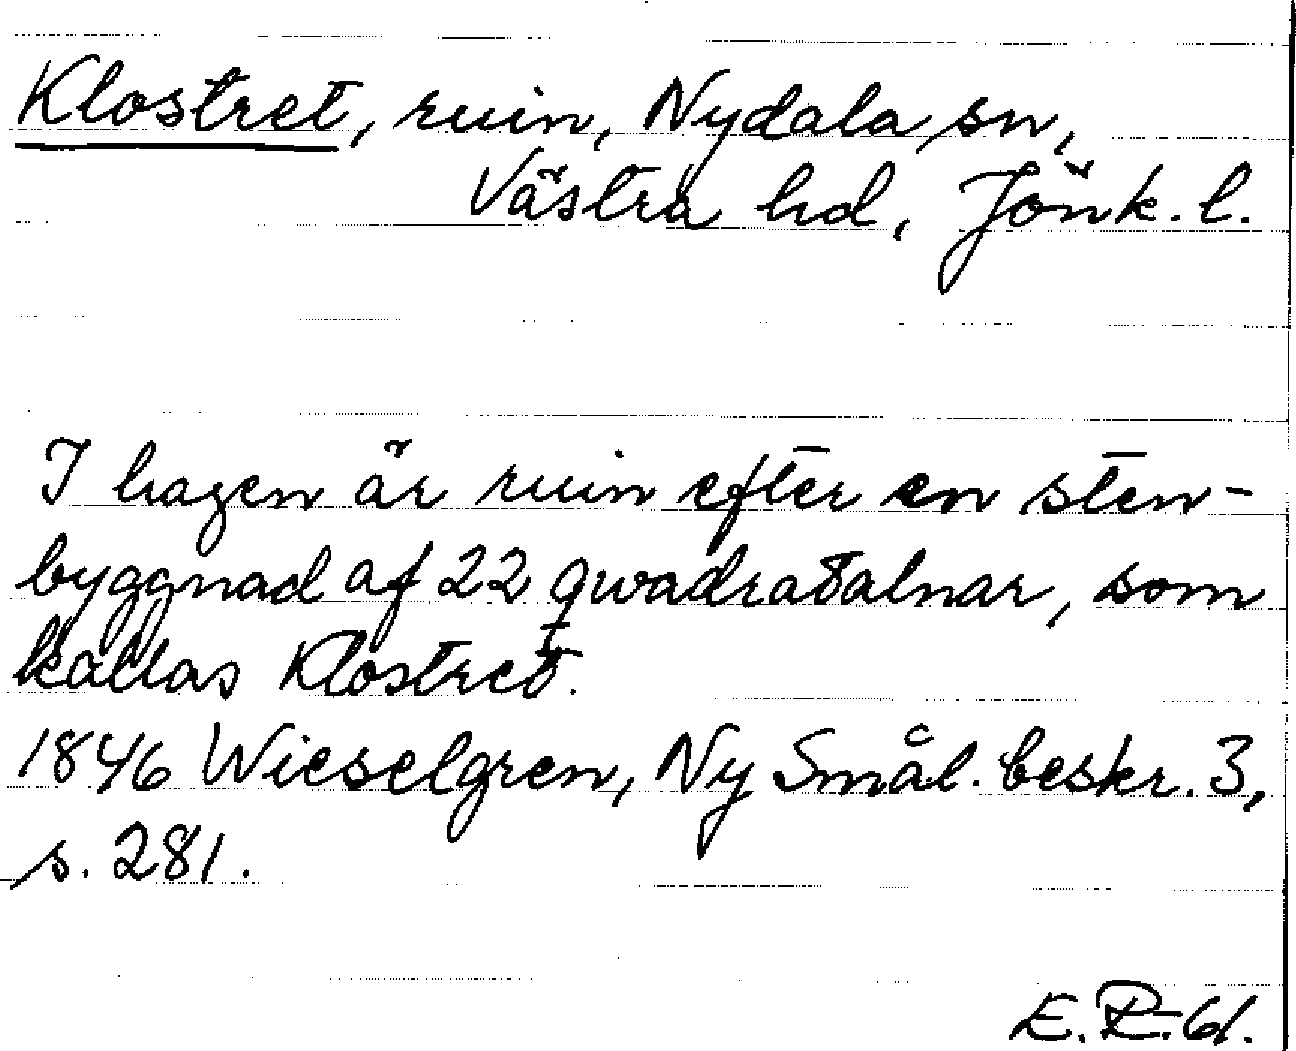 Klostret, ruin, Nydala sn,
Västra hd, Jönk. l.
I hagen är ruin efter en sten-
byggnad af 22 qwadratalnar, som
kallas Klostret.
1846 Wieselgren, Ny Smål. beskr. 3,
s. 281.
E. R-61.